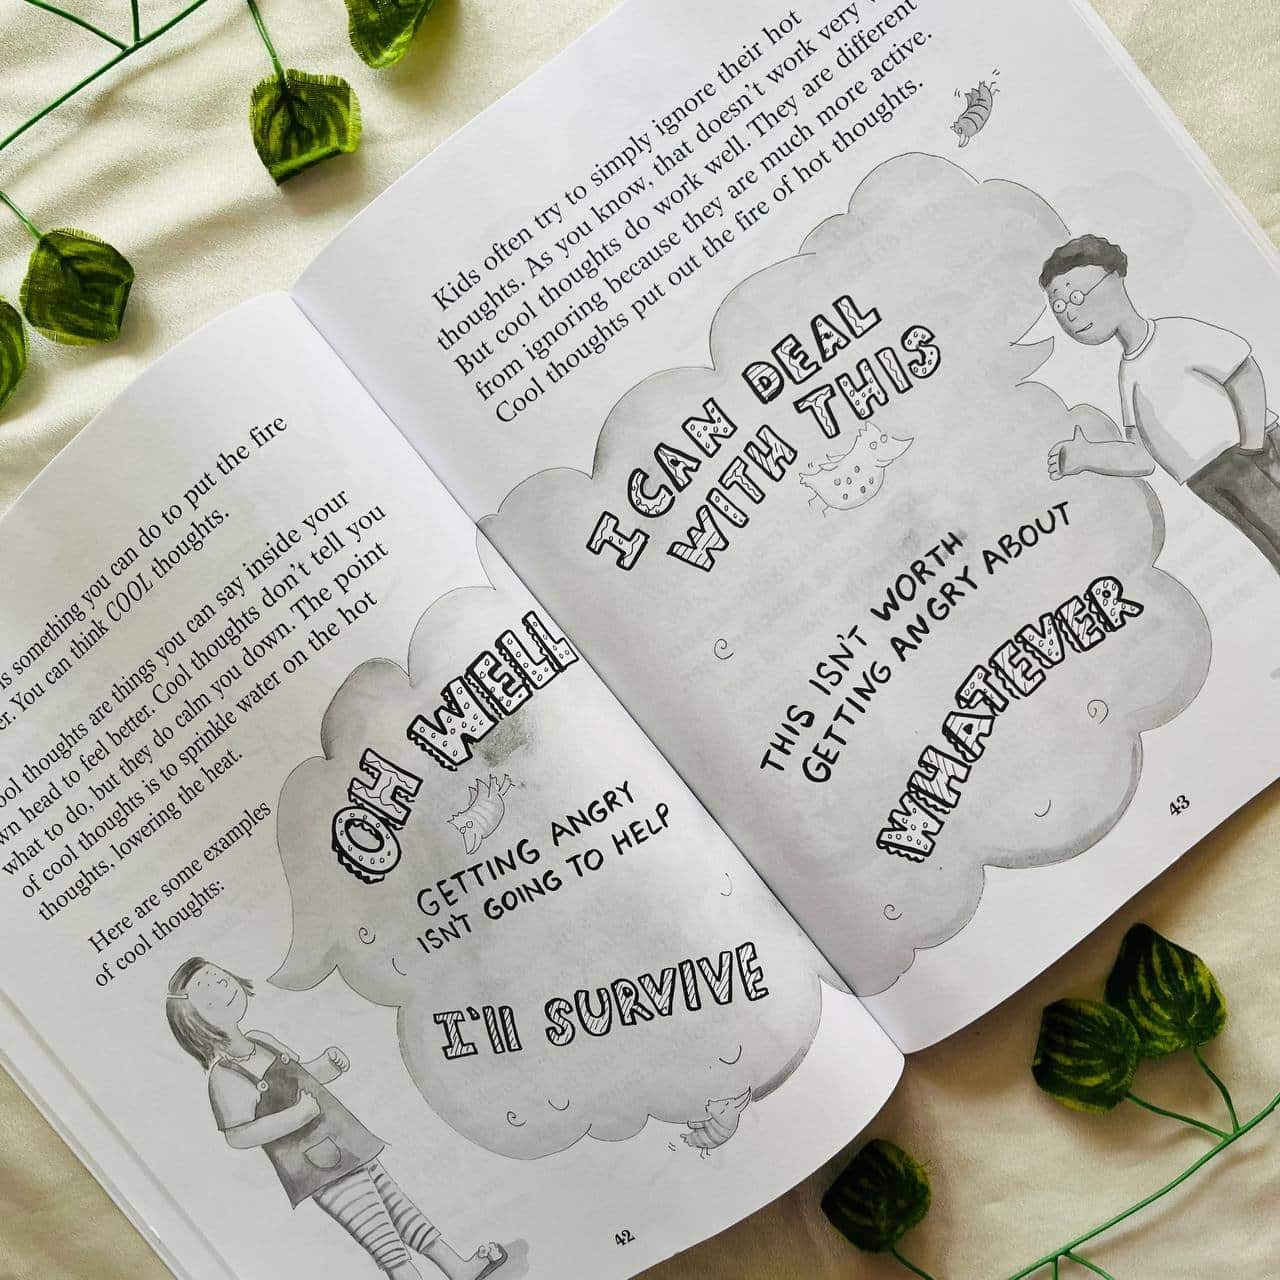 is something you can do to put the fire
You can think COOL thoughts.
thoughts are things you can say inside your
own head to feel better. Cool thoughts don't tell you
what to do, but they do calm you down. The point
of cool thoughts is to sprinkle water on the hot
thoughts, lowering the heat.
Here are some examples
of cool thoughts:
OH WELL
GETTING ANGRY
ISN'T GOING TO HELP
I'll SURVIVE
42
Kids often try to simply ignore their hot
thoughts. As you know, that doesn't work very
But cool thoughts do work well. They are different
from ignoring because they are much more active.
Cool thoughts put out the fire of hot thoughts.
I CAN DEAL
WITH THIS
THIS ISN'T WORTH
GETTING ANGRY ABOUT
WHATEVER
43